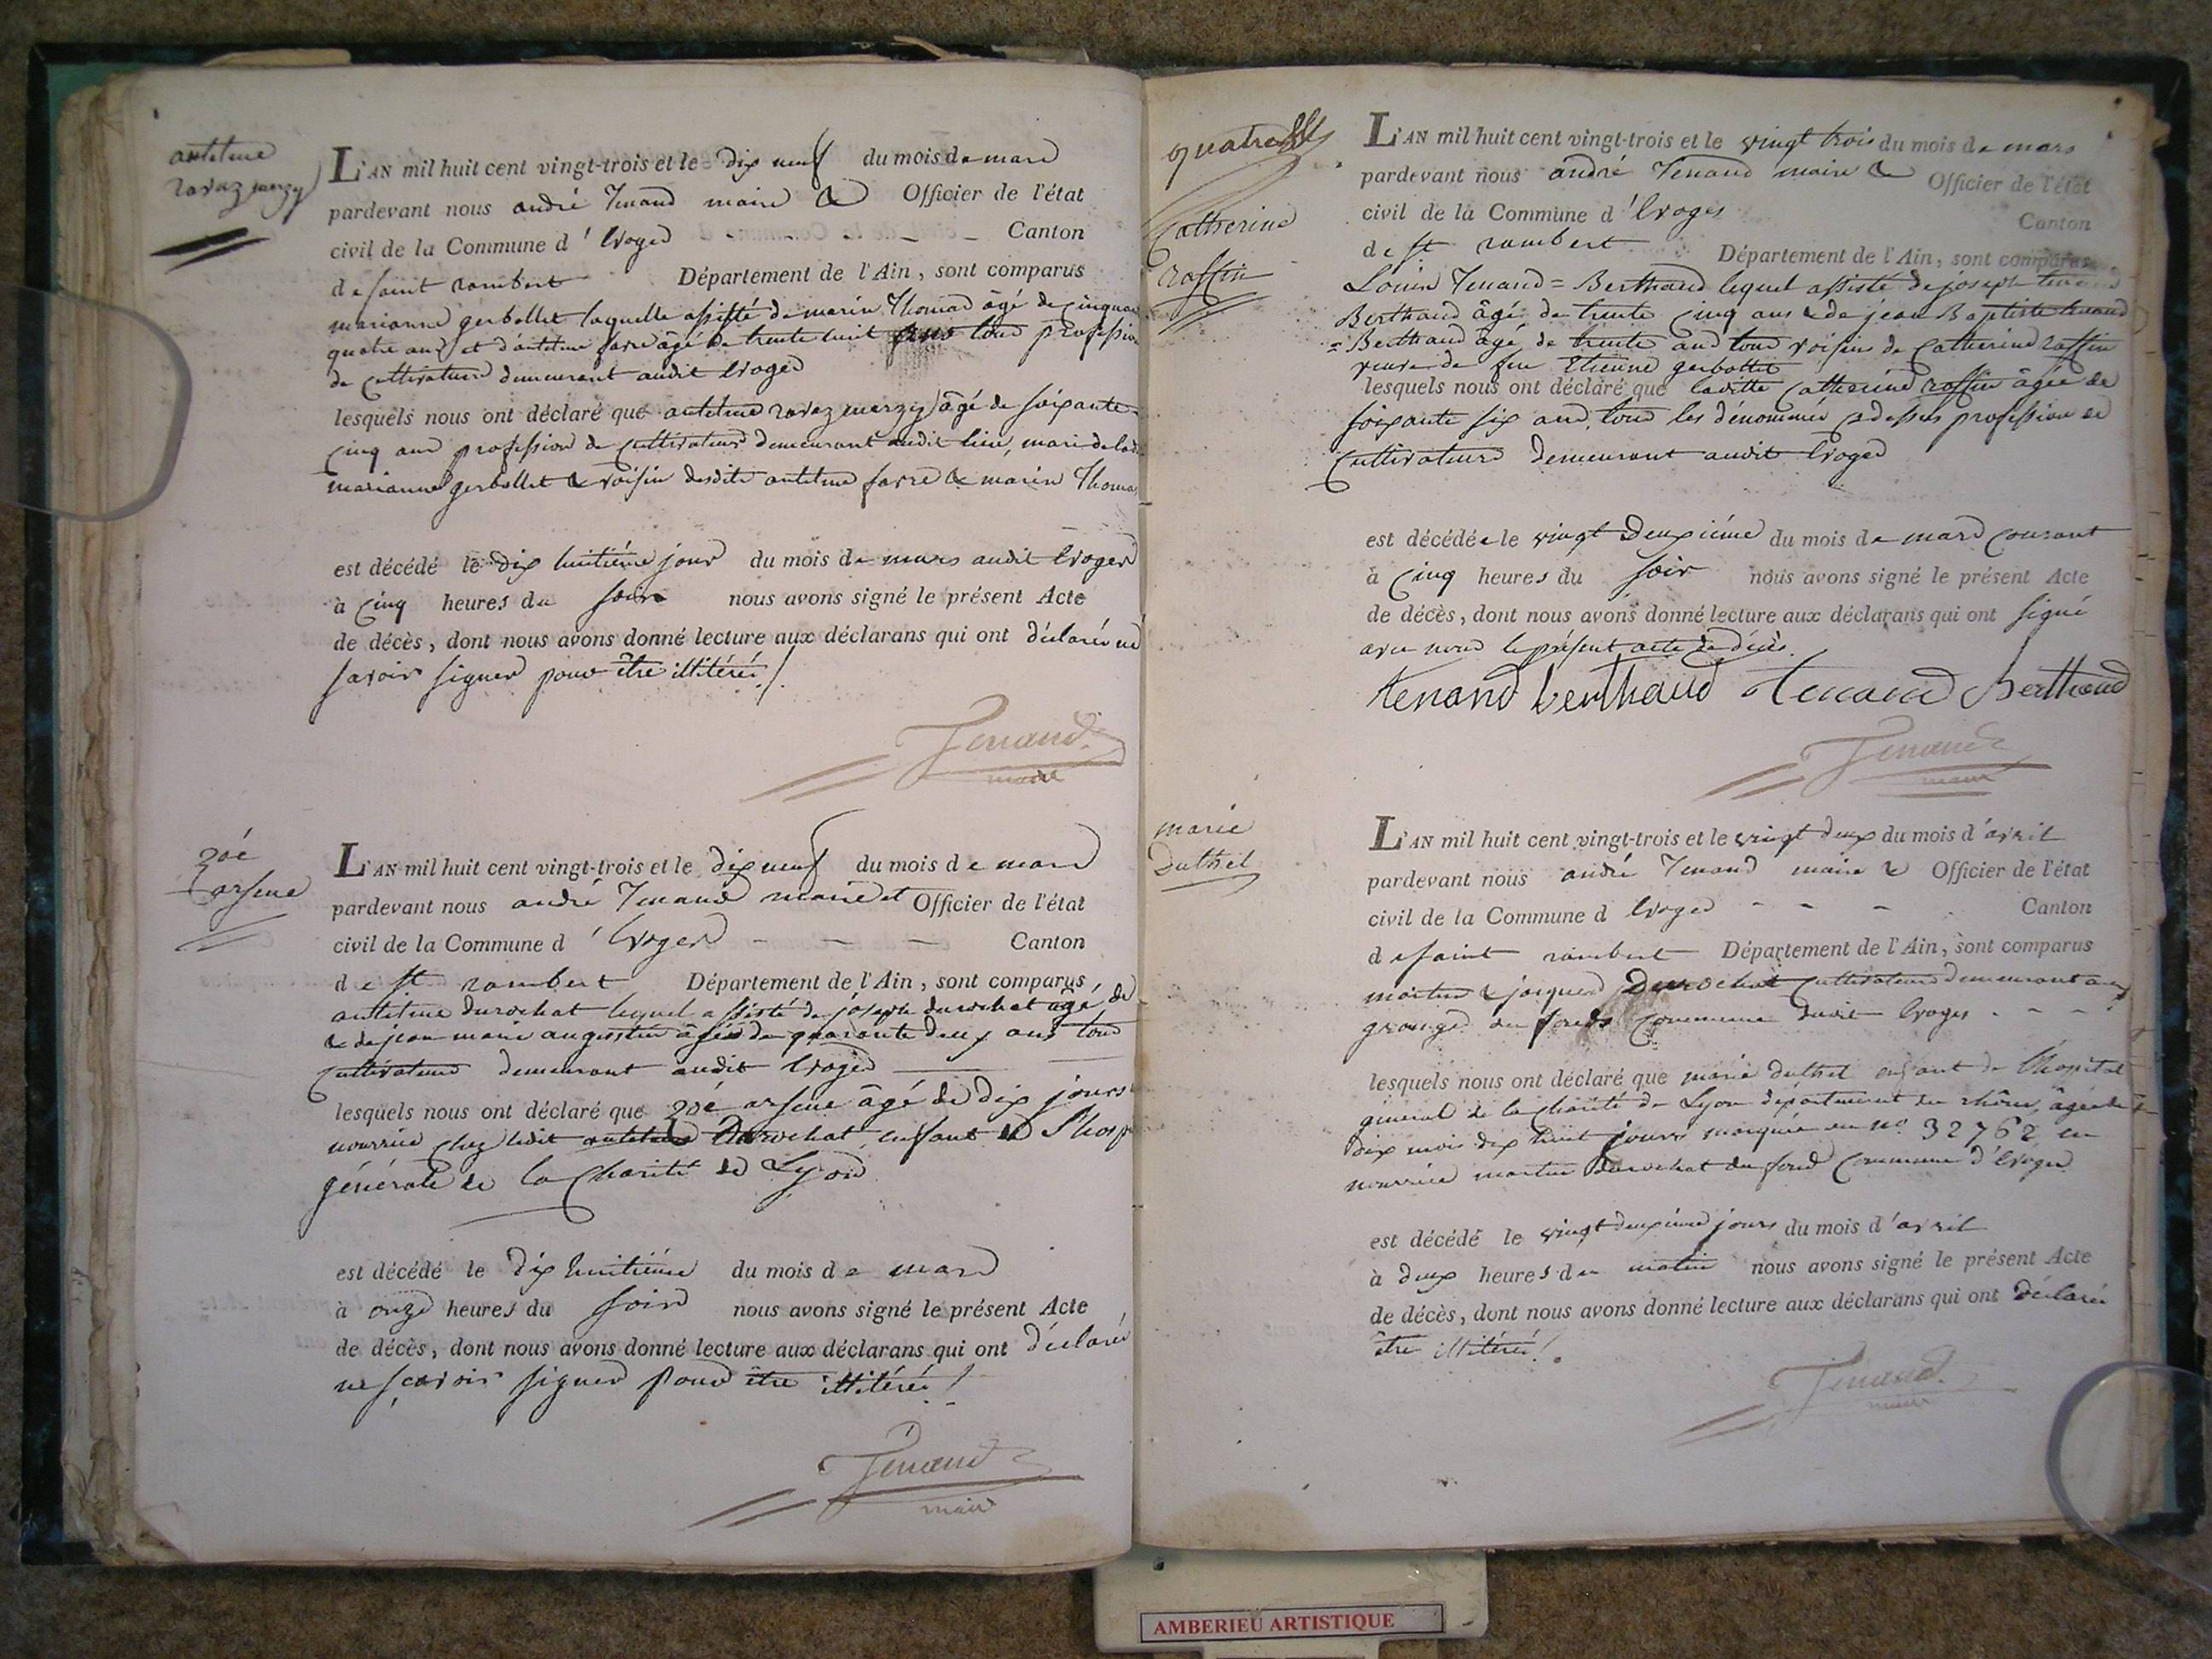 antelme
ravaz merzy
L'AN mil huit cent vingt-trois et le dix neuf du mois de mard
pardevant nous andré Tenand maire & Officier de l'état
civil de la Commune d' Evoges - - - - Canton
de saint rambert Département de l'Ain, sont comparus
marianne gerbollet laquelle assisté de marin Thomas âgé de cinquante
quatre ans et d'antelme favre âgé de trente huit ans tous profession
de cultivateurs demeurant audit Evoges
lesquels nous ont déclaré que antelme ravaz merzy âgé de soixante
cinq ans profession de cultivateur demeurant audit lieu, mari de ladite
marianne gerbollet & voisin desdits antelme favre & marin Thomas
est décédé le dix huitième jour du mois de mars audit Evoges
à cinq heures du soir nous avons signé le présent Acte
de décès, dont nous avons donné lecture aux déclarans qui ont déclarés ne
savoir signer pour être illitérés /.
Tenand
maire
zoé
arsene
L'AN mil huit cent vingt-trois et le dix neuf du mois de mard
pardevant nous andré Tenand maire et Officier de l'état
civil de la Commune d' Evoges - - - Canton
de st rambert Département de l'Ain, sont comparus
antelme durochat lequel assisté de joseph durochat agé de
& de jean marie augustin âgés de quarante deux ans tous
cultivateurs demeurant audit Evoges
lesquels nous ont déclaré que zoé arsene âgé de dix jours
nourrice chez ledit antelme Durochat, enfant de l'hosp
générale de la Charité de Lyon
est décédé le dix huitième du mois de mard
à onze heures du soir nous avons signé le présent Acte
de décès, dont nous avons donné lecture aux déclarans qui ont déclaré
ne scavoir signer pour être illitérés /
Tenand
maire
quatre
Catherine
roffin
L'AN mil huit cent vingt-trois et le vingt trois du mois de mars
pardevant nous andré Tenand maire & Officier de l'état
civil de la Commune d' Evoges Canton
de st rambert Département de l'Ain, sont comparus
Louis Tenand = Berthaud lequel assisté de joseph tenand
Berthaud âgé de trente cinq ans & de jean Baptiste tenand
= Berthaud âgé de trente ans tous voisins de Catherine roffin
veuve de feu Etienne gerbollet
lesquels nous ont déclaré que laditte Catherine roffin âgée de
soixante six ans, tous les dénommés cy dessus profession de
cultivateurs demeurant audit Evoges
est décédée le vingt deuxième du mois de mard courant
à cinq heures du soir nous avons signé le présent Acte
de décès, dont nous avons donné lecture aux déclarans qui ont signé
avec nous le présent acte de décès.
tenand berthaud tenand Berthaud
Tenand
maire
marie
Duthel
L'AN mil huit cent vingt-trois et le vingt deux du mois d'avril
pardevant nous andré Tenand maire & Officier de l'état
civil de la Commune d Evoges - - - Canton
de saint rambert Département de l'Ain, sont comparus
martin & jacques Durochat cultivateurs demeurant aux
granges du fonds commune dudit Evoges - - -
lesquels nous ont déclaré que marie duthel enfant de l'hospital
général de la charité de Lyon département du rhône, âgée de
dix mois dix huit jours marquée au no. 32762 en
nourrice martin durochat du fond commune d'Evoges
est décédé le vingt deuxième jours du mois d'avril
à deux heures du matin nous avons signé le présent Acte
de décès, dont nous avons donné lecture aux déclarans qui ont déclarés
être illitérés /.
Tenand
maire
AMBERIEU ARTISTIQUE